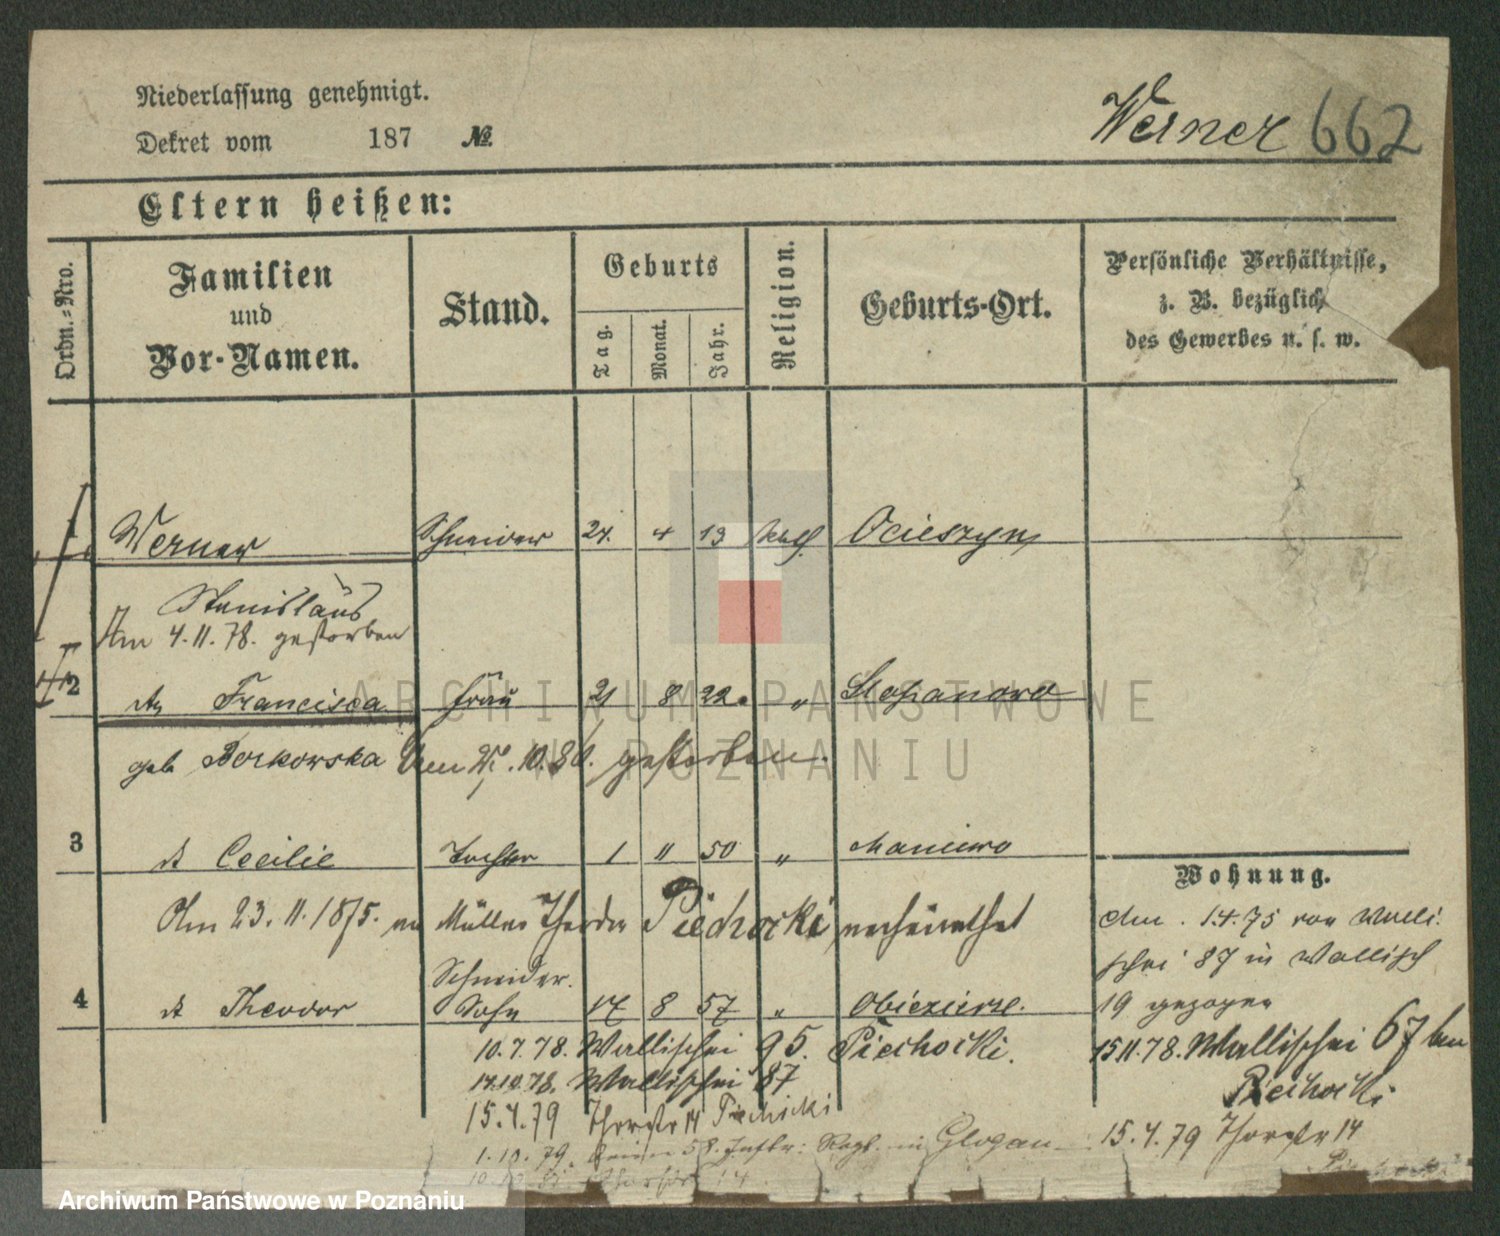 Niederlassung genehmigt.
Dekret vom 187 №
Werner 662
Eltern heißen:
Ordn.-Nro.
Familien und Vor-Namen.
Stand.
Geburts
Tag.
Monat.
Jahr.
Religion.
Geburts-Ort.
Persönliche Verhältnisse,
z. B. bezüglich
des Gewerbes u. s. w.
1 Werner Schneider 24. 4 13 kath. Ocieszyn
Stanislaus
Am 4.11.78. gestorben
2 Francisca Frau 21 8 22. " Stepanowo
geb Borkowska Am .10.80. gestorben.
3 Cecilie Tochter 1 " 50 " Maniewo
Am 23.11.1875. Müller Theodor Piechocki verheirathet
Schneider.
4 Theodor Sohn 17 8 57 " Obiezierze.
Wohnung.
Am 1.4.75 von Walli-
schei 87 in Wallisch
19 gezogen
15.11.78. Wallischei 67 bei
Piechocki
15.4.79 Thorstr 14
10.7.78. Wallischei 95. Piechocki.
14.10.78. Wallischei 87
15.4.79 Thorstr 14 Piechocki
1.10.79. beim 58. Inftr: Regt. in Glogau
ARCHIWUM PAŃSTWOWE
W POZNANIU
Archiwum Państwowe w Poznaniu